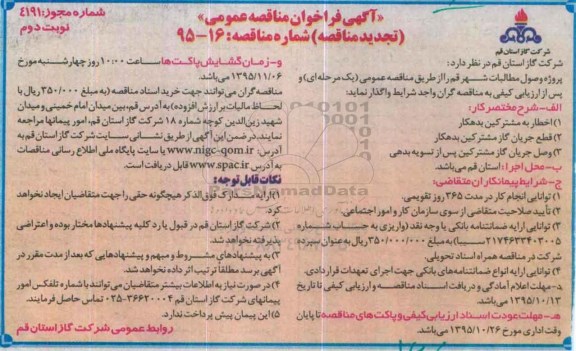 «آگهی فراخوان مناقصه عمومی»
(تجدید مناقصه) شماره مناقصه: ۱۶-۹۵
شماره مجوز: ۴۱۹۱
نوبت دوم
شرکت گاز استان قم
شرکت گاز استان قم در نظر دارد:
پروژه وصول مطالبات شهر قم را از طریق مناقصه عمومی (یک مرحله ای) و
پس از ارزیابی کیفی به مناقصه گران واجد شرایط واگذار نماید:
الف- شرح مختصر کار:
۱) اخطار به مشترکین بدهکار
۲) قطع جریان گاز مشترکین بدهکار
۳) وصل جریان گاز مشترکین پس از تسویه بدهی
ب- محل اجرا: استان قم می‌باشد.
ج- شرایط پیمانکاران متقاضی:
۱) توانایی انجام کار در مدت ۳۶۵ روز تقویمی.
۲) تأیید صلاحیت متقاضی از سوی سازمان کار و امور اجتماعی.
۳) توانایی ارایه ضمانتنامه بانکی یا وجه نقد (واریزی به حساب شماره
۲۱۷۴۶۳۳۴۰۳۰۰۵ سیبا) به مبلغ ۳۵۰/۰۰۰/۰۰۰ ریال به عنوان سپرده
شرکت در مناقصه همراه اسناد تحویلی.
۴) توانایی ارایه انواع ضمانتنامه های بانکی جهت اجرای تعهدات قراردادی.
د- مهلت اعلام آمادگی و دریافت اسناد مناقصه و ارزیابی کیفی تا تاریخ
۱۳۹۵/۱۰/۱۳ می‌باشد.
هـ- مهلت عودت اسناد ارزیابی کیفی و پاکت های مناقصه تا پایان
وقت اداری مورخ ۱۳۹۵/۱۰/۲۶ می‌باشد.
و- زمان گشایش پاکت ها ساعت ۱۰:۰۰ روز چهارشنبه مورخ
۱۳۹۵/۱۱/۰۶ می‌باشد.
مناقصه گران می‌توانند جهت خرید اسناد مناقصه (به مبلغ ۳۵۰/۰۰۰ ریال با
لحاظ مالیات بر ارزش افزوده) به آدرس قم، بین میدان امام خمینی و میدان
شهید زین الدین کوچه شماره ۱۸ شرکت گاز استان قم، امور پیمانها مراجعه
نمایند. در ضمن این آگهی از طریق نشانی سایت شرکت گاز استان قم به
آدرس: www.nigc-qom.ir یا سایت پایگاه ملی اطلاع رسانی مناقصات
به آدرس www.spac.ir قابل دریافت است.
نکات قابل توجه:
۱) ارایه مدارک فوق الذکر هیچگونه حقی را جهت متقاضیان ایجاد نخواهد
کرد.
۲) شرکت گاز استان قم در قبول یا رد کلیه پیشنهادها مختار بوده و اعتراضی
پذیرفته نخواهد شد.
۳) به پیشنهادهای مشروط و مبهم و پیشنهادهایی که بعد از مدت مقرر در
آگهی برسد مطلقاً ترتیب اثر داده نخواهد شد.
۴) در صورت نیاز به اطلاعات بیشتر متقاضیان می‌توانند با شماره تلفکس امور
پیمانهای شرکت گاز استان قم ۳۶۶۲۰۰۰۴-۰۲۵ تماس حاصل فرمایند.
۵) این پیمان پیش پرداخت ندارد.
روابط عمومی شرکت گاز استان قم